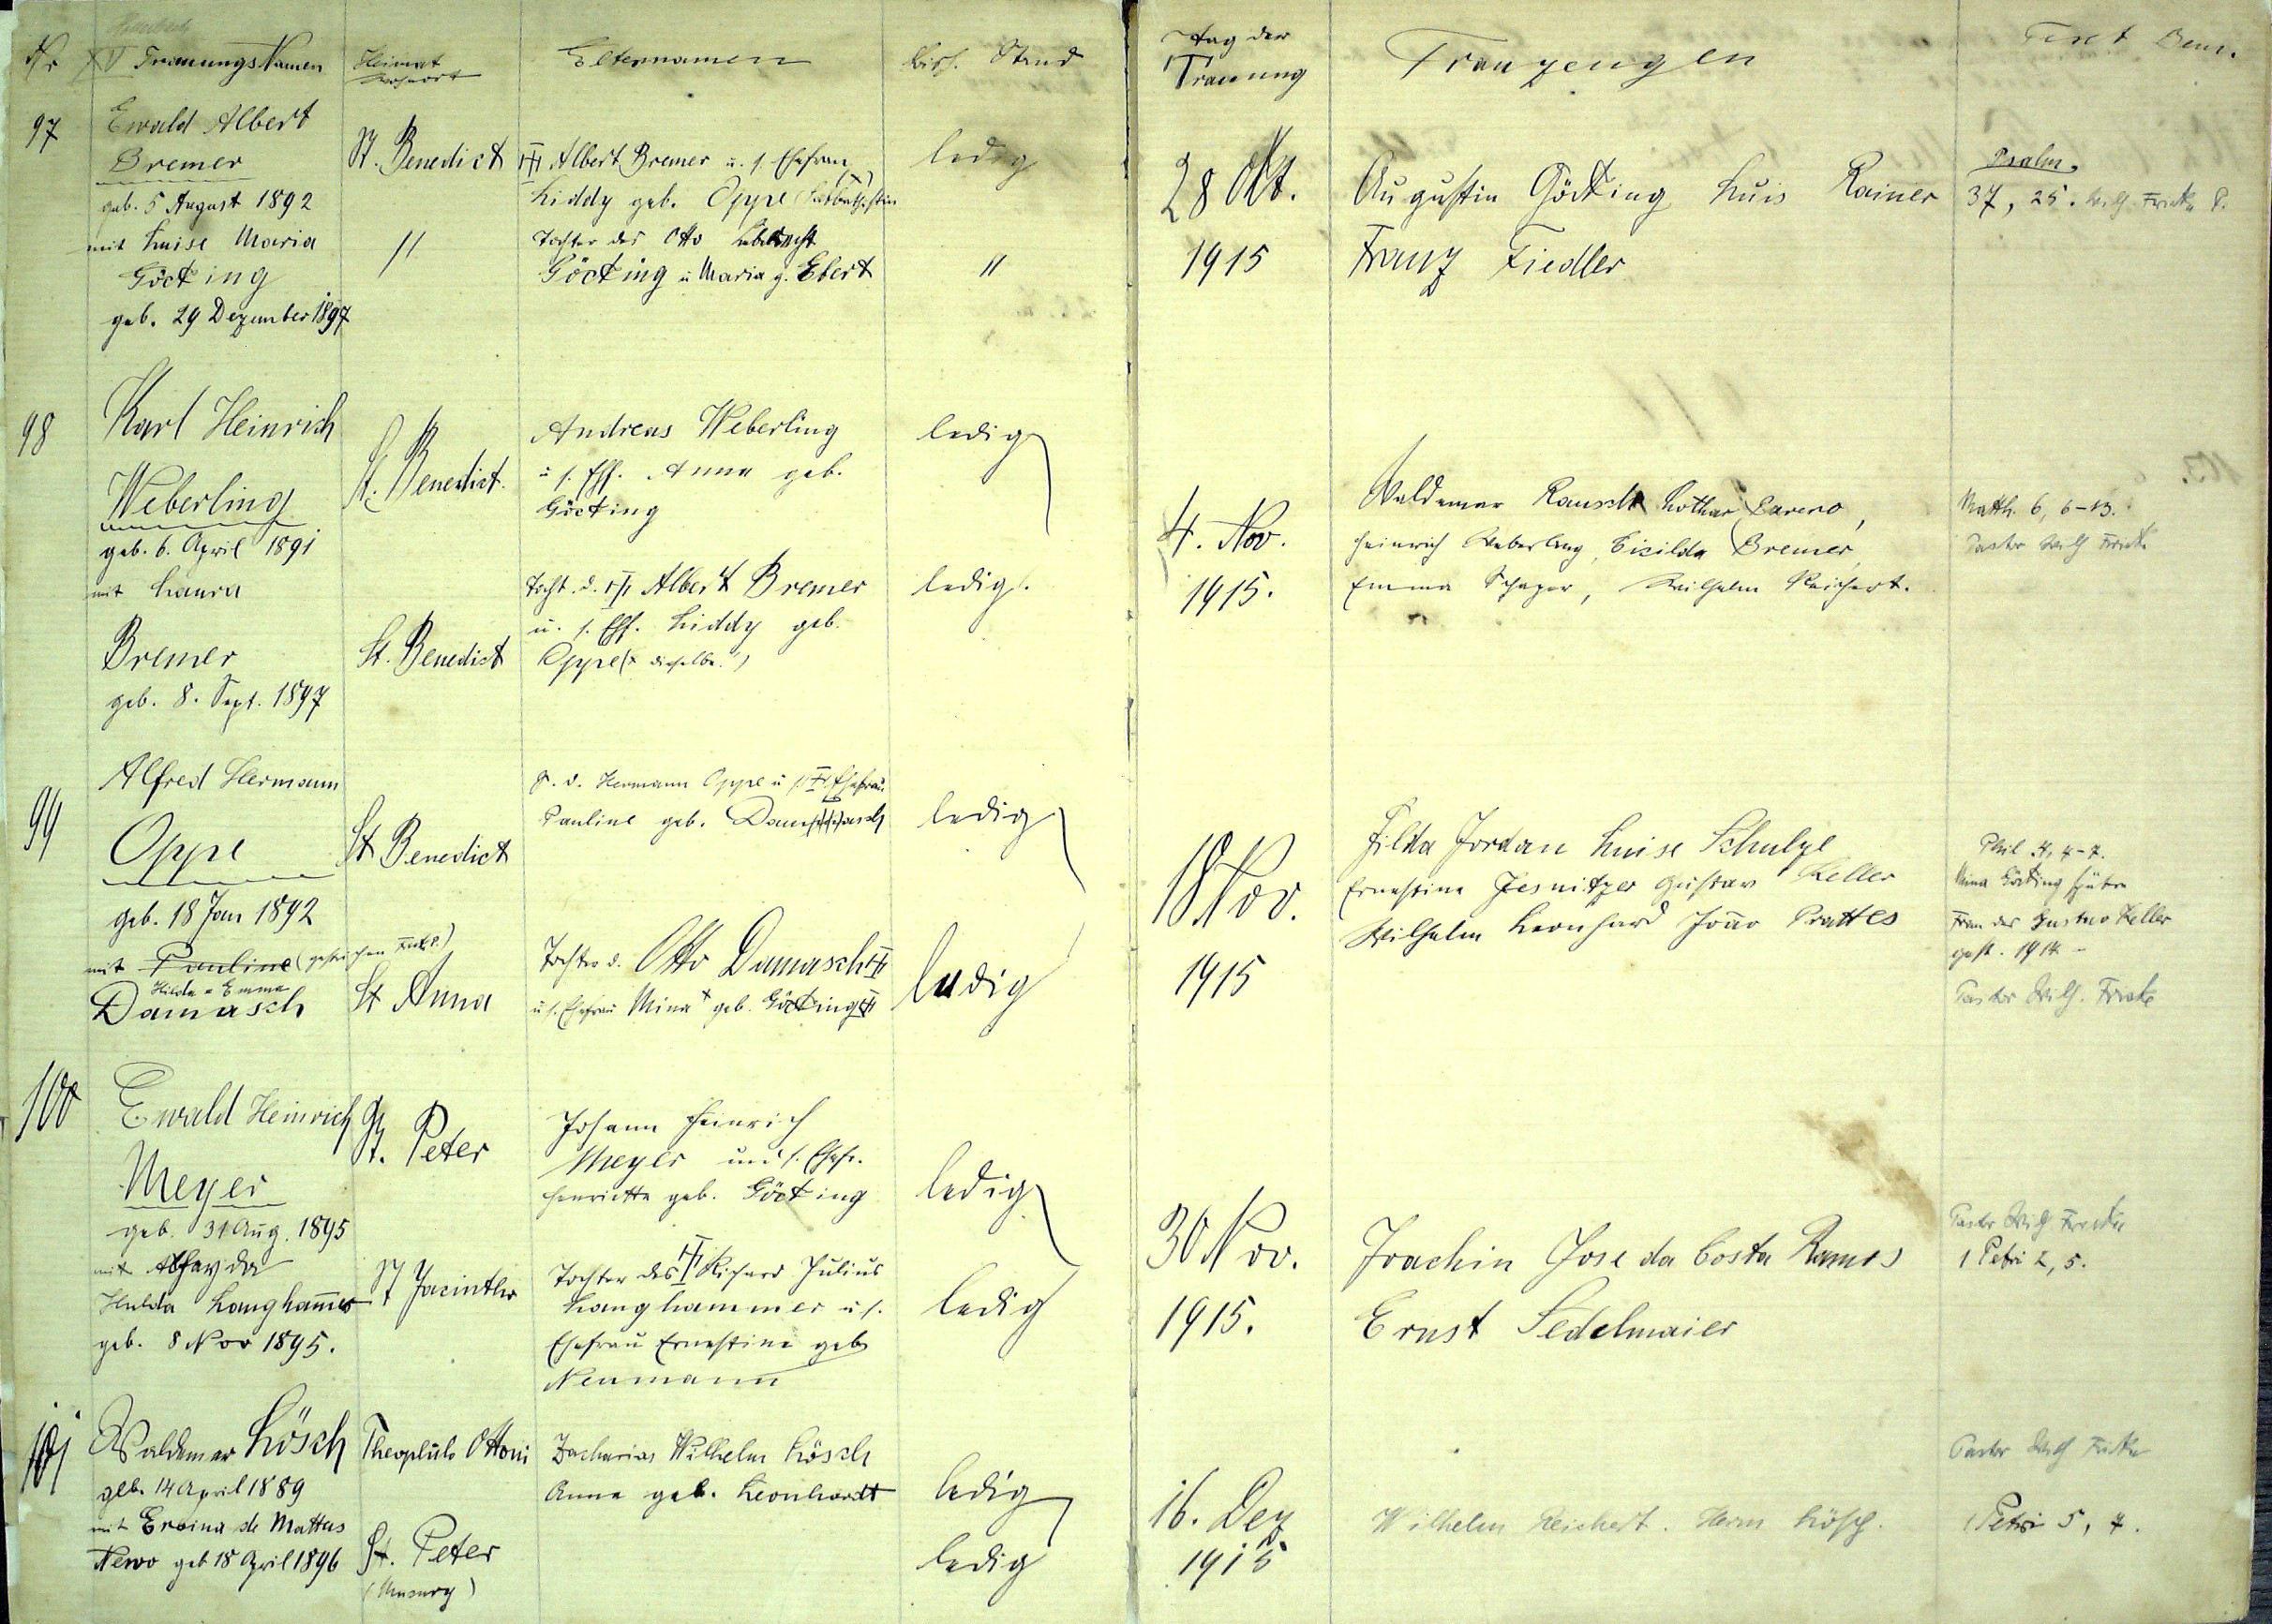 Nr Trauungs Namen Heimat Wohnort Elternnamen bish. Stand Tag der Trauung Trauzeugen Text Bem.
97
Ewald Albert
Bremer
geb. 5 August 1892
mit Luise Maria
Göcking
geb. 29 Dezember 1897
St. Benedict
"
Albert Bremer u. s. Ehefrau
Liddy geb. Oppe
Tochter des Otto
Göcking u Maria g. Ebert
ledig
"
28 Okt.
1915
Augustin Göcking Luis Rainer
Franz Fiedler
Psalm.
37, 25. Wilh. Fricke P.
98
Karl Heinrich
Weberling
geb. 6. April 1891
mit Laura
Bremer
geb. 8. Sept. 1897
St. Benedict.
St. Benedict
Andreas Weberling
u s. Ehf. Anna geb.
Göcking
Tocht. d. Albert Bremer
u. s. Ehf. Liddy geb.
Oppe (x dieselbe!)
ledig
ledig.
4. Nov.
1915.
Waldemar Rausch Lothar
Heinrich Weberling, Bremer,
Emma Schaper, Wilhelm Reichert.
Matth. 6, 6-13.
Pastor Wilh Fricke
99
Alfred Hermann
Oppe
geb. 18 Jan 1892
mit Pauline (gestrichen Fricke P.)
Hilda Emma
Damasch
St Benedict
St Anna
S. d. Hermann Oppe u s. Ehefrau
Pauline geb.
Tochter d. Otto Damasch
u s. Ehefrau Mina geb. Göcking
ledig
ledig
18 Nov.
1915
Hilda Jordan Luise Schulze
Ernestine Jesnitzer Gustav Keller
Wilhelm Leonhard João Prattes
Phil 4, 4-7.
Mina Göcking spätere
Frau des Gustav Keller
gest. 1914 -
Pastor Wilh. Fricke
100
Ewald Heinrich
Meyer
geb. 31 Aug. 1895
mit
Hulda Langhammer
geb. 8 Nov 1895.
St. Peter
St Jacintho
Johann Heinrich
Meyer und s. Ehefr.
Henriette geb. Göcking
Tochter des Richard Julius
Langhammer u s.
Ehefrau Ernestine geb
Neumann
ledig
ledig
30 Nov.
1915.
Joachin Jose da Costa Ramos
Ernst Sedelmaier
Pastor Wilh Fricke
1 Petri 2, 5.
101
Waldemar Lösch
geb. 14 April 1889
mit Eroina de Mattus
Nervo geb 18 April 1896
Theophilo Ottoni
St. Peter
Zacharias Wilhelm Lösch
Anna geb. Leonhardt
ledig
ledig
16. Dez
1915
Wilhelm Reichert. Herm Lösch.
Pastor Wilh Fricke
1 Petri 5, 7.